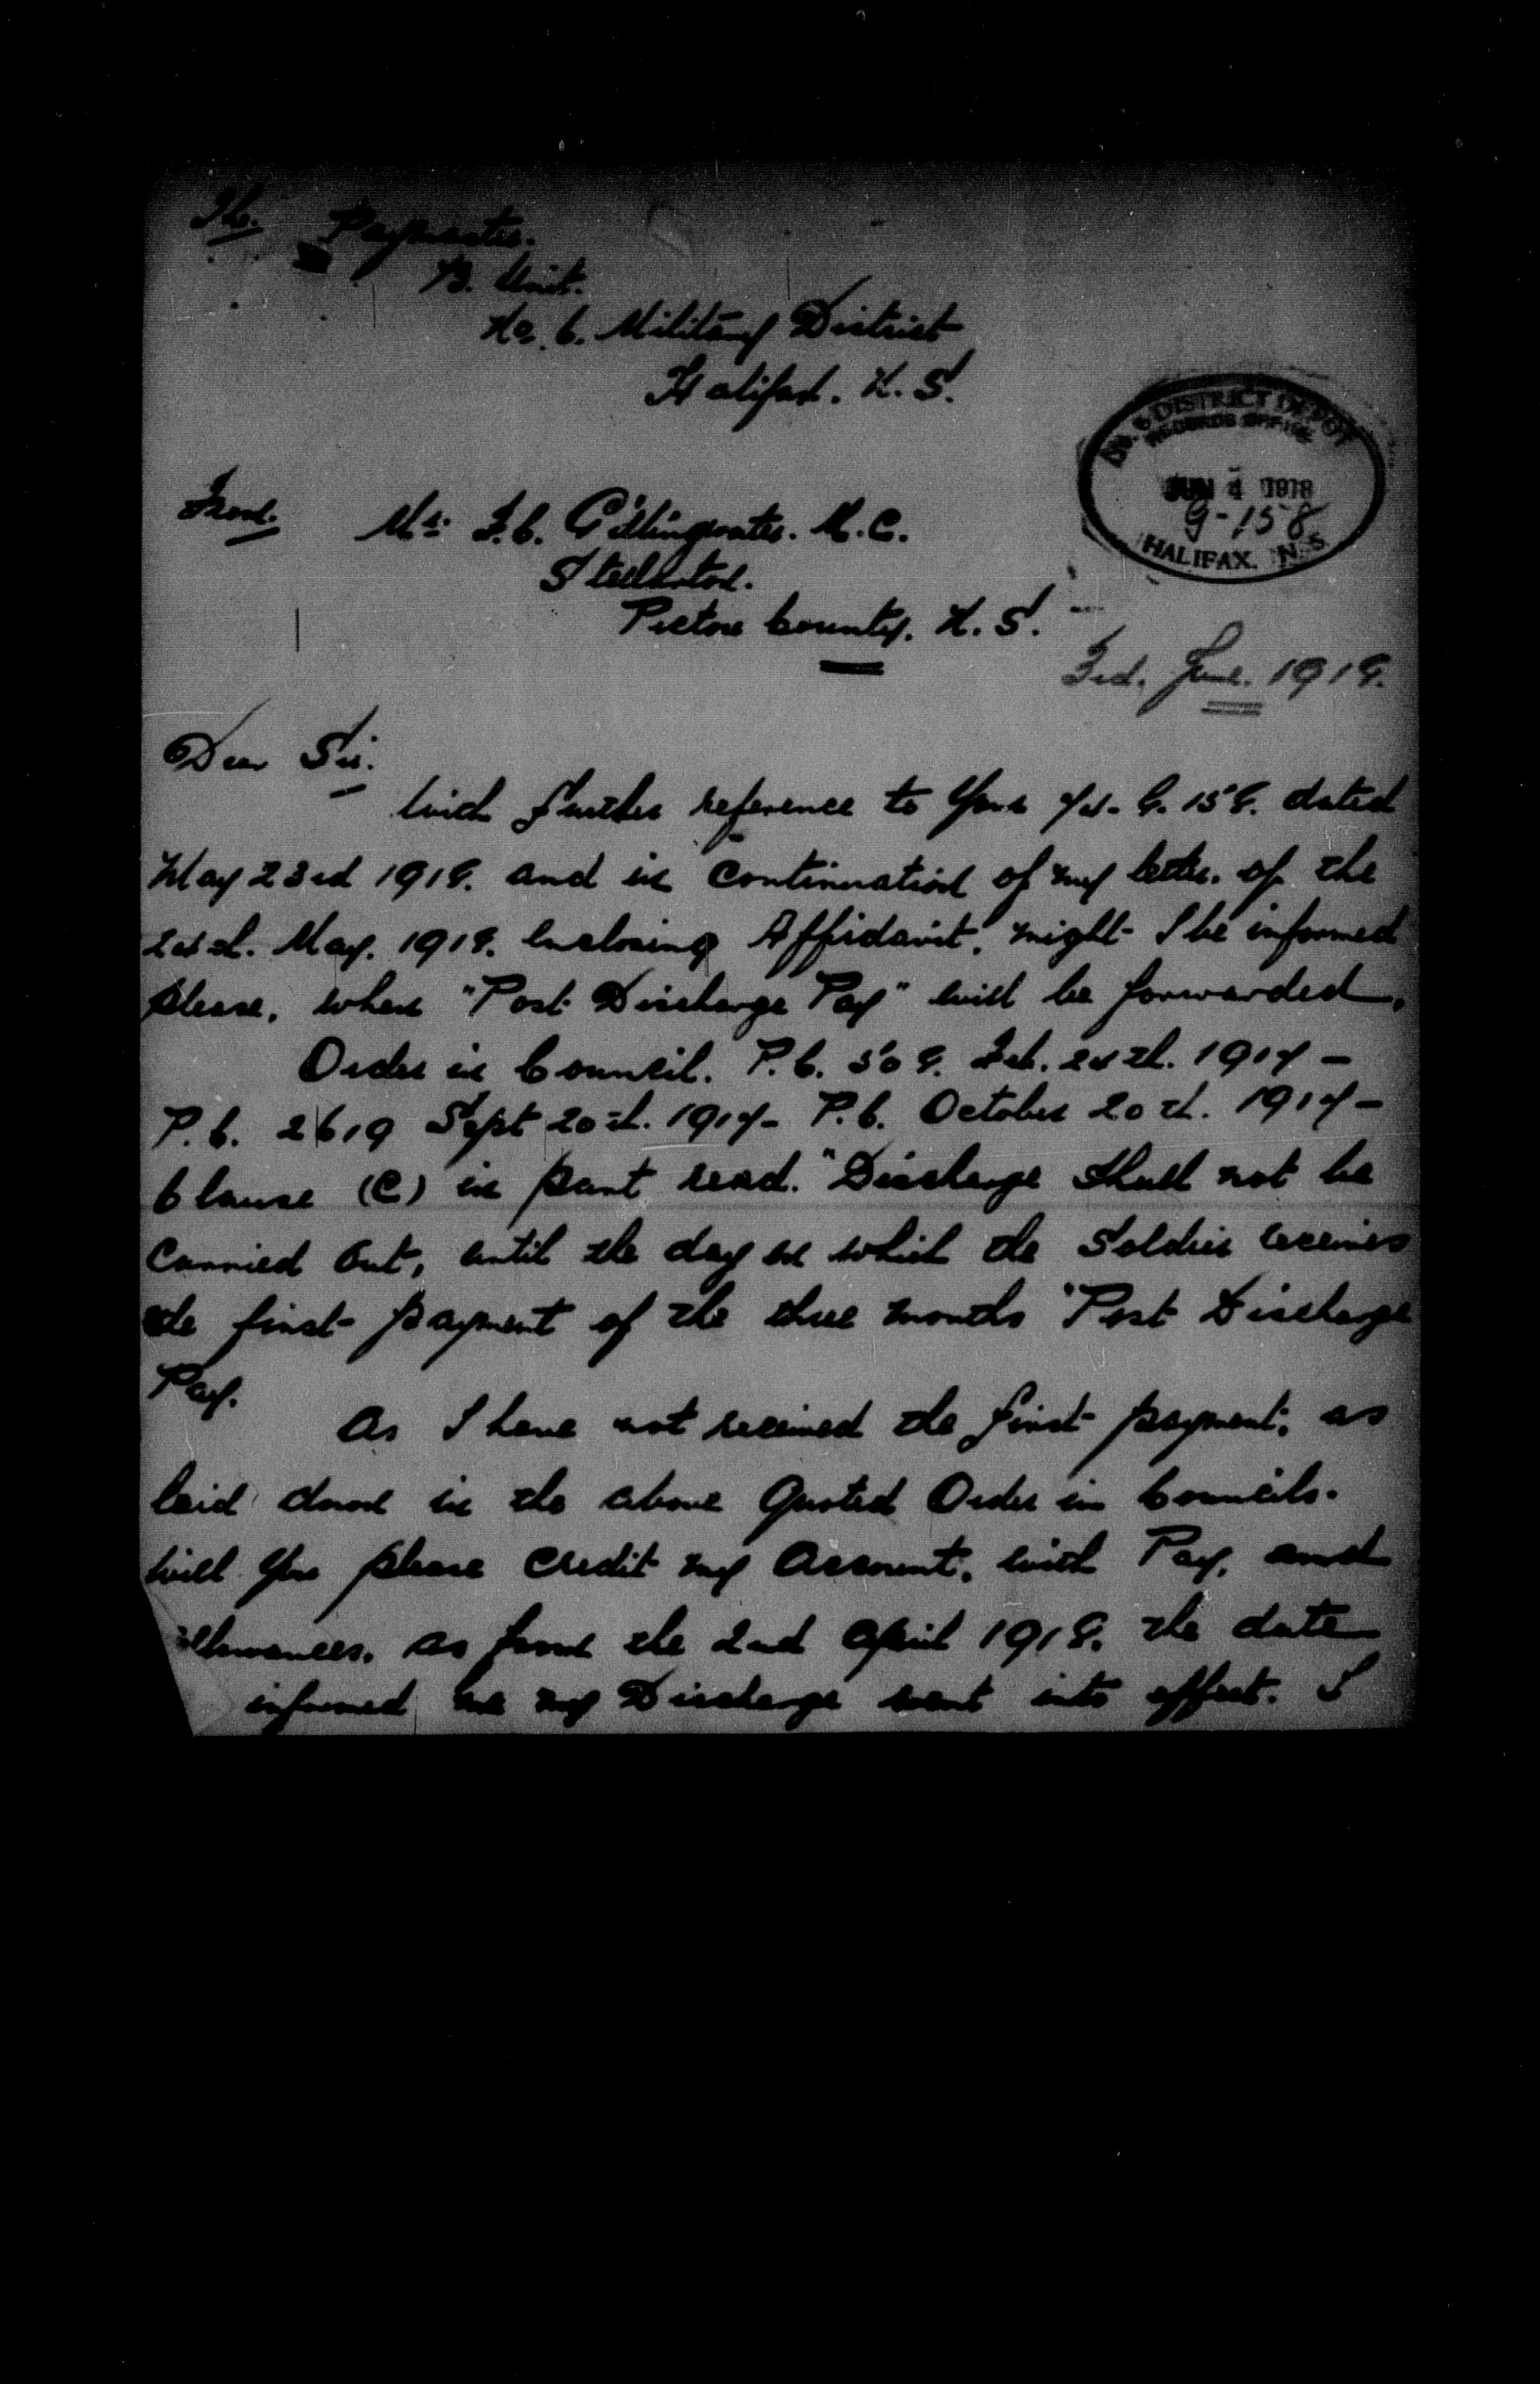 To. Paymaster.
B. Unit.
No. 6. Military District
Halifax. N. S.
No. 6 DISTRICT DEPOT
RECORDS OFFICE
JUN 4 1918
G-158
HALIFAX. N. S.
From. Mr. F. C. Gillingwater. M. C.
Stellarton.
Pictou County. N. S.
3rd. June. 1918.
Dear Sir.
With further reference to Yours G. 158. dated
May 23rd 1918. and in Continuation of my letter. of the
May. 1918. Enclosing Affidavit, might I be informed
please, when "Post Discharge Pay" will be forwarded.
Order in Council. P. C. 508. Feb. 1917 -
P. C. 2619 Sept 20th. 1917 - P. C. October 20th. 1917 -
Clause (C) in part read. "Discharge Shall not be
Carried Out, until the day on which the Soldier receives
the first payment of the three months "Post Discharge
Pay.
As I have not received the first payment, as
laid down in the above Quoted Order in Councils.
will You please Credit my Account, with Pay, and
allowances, as from the 2nd April 1918. the date
informed me my Discharge went into effect. I